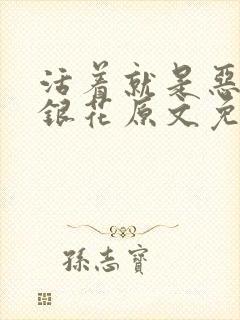 活着就是恶
银花原文免
孫志寶